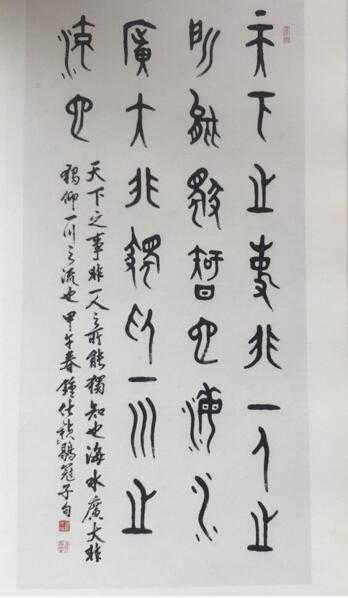 天下之事非一人之
所能獨智也海水
廣大非獨仰一川之
流也
天下之事非一人之所能獨知也海水廣大非
獨仰一川之流也 甲午春鐘仕鶡冠子句